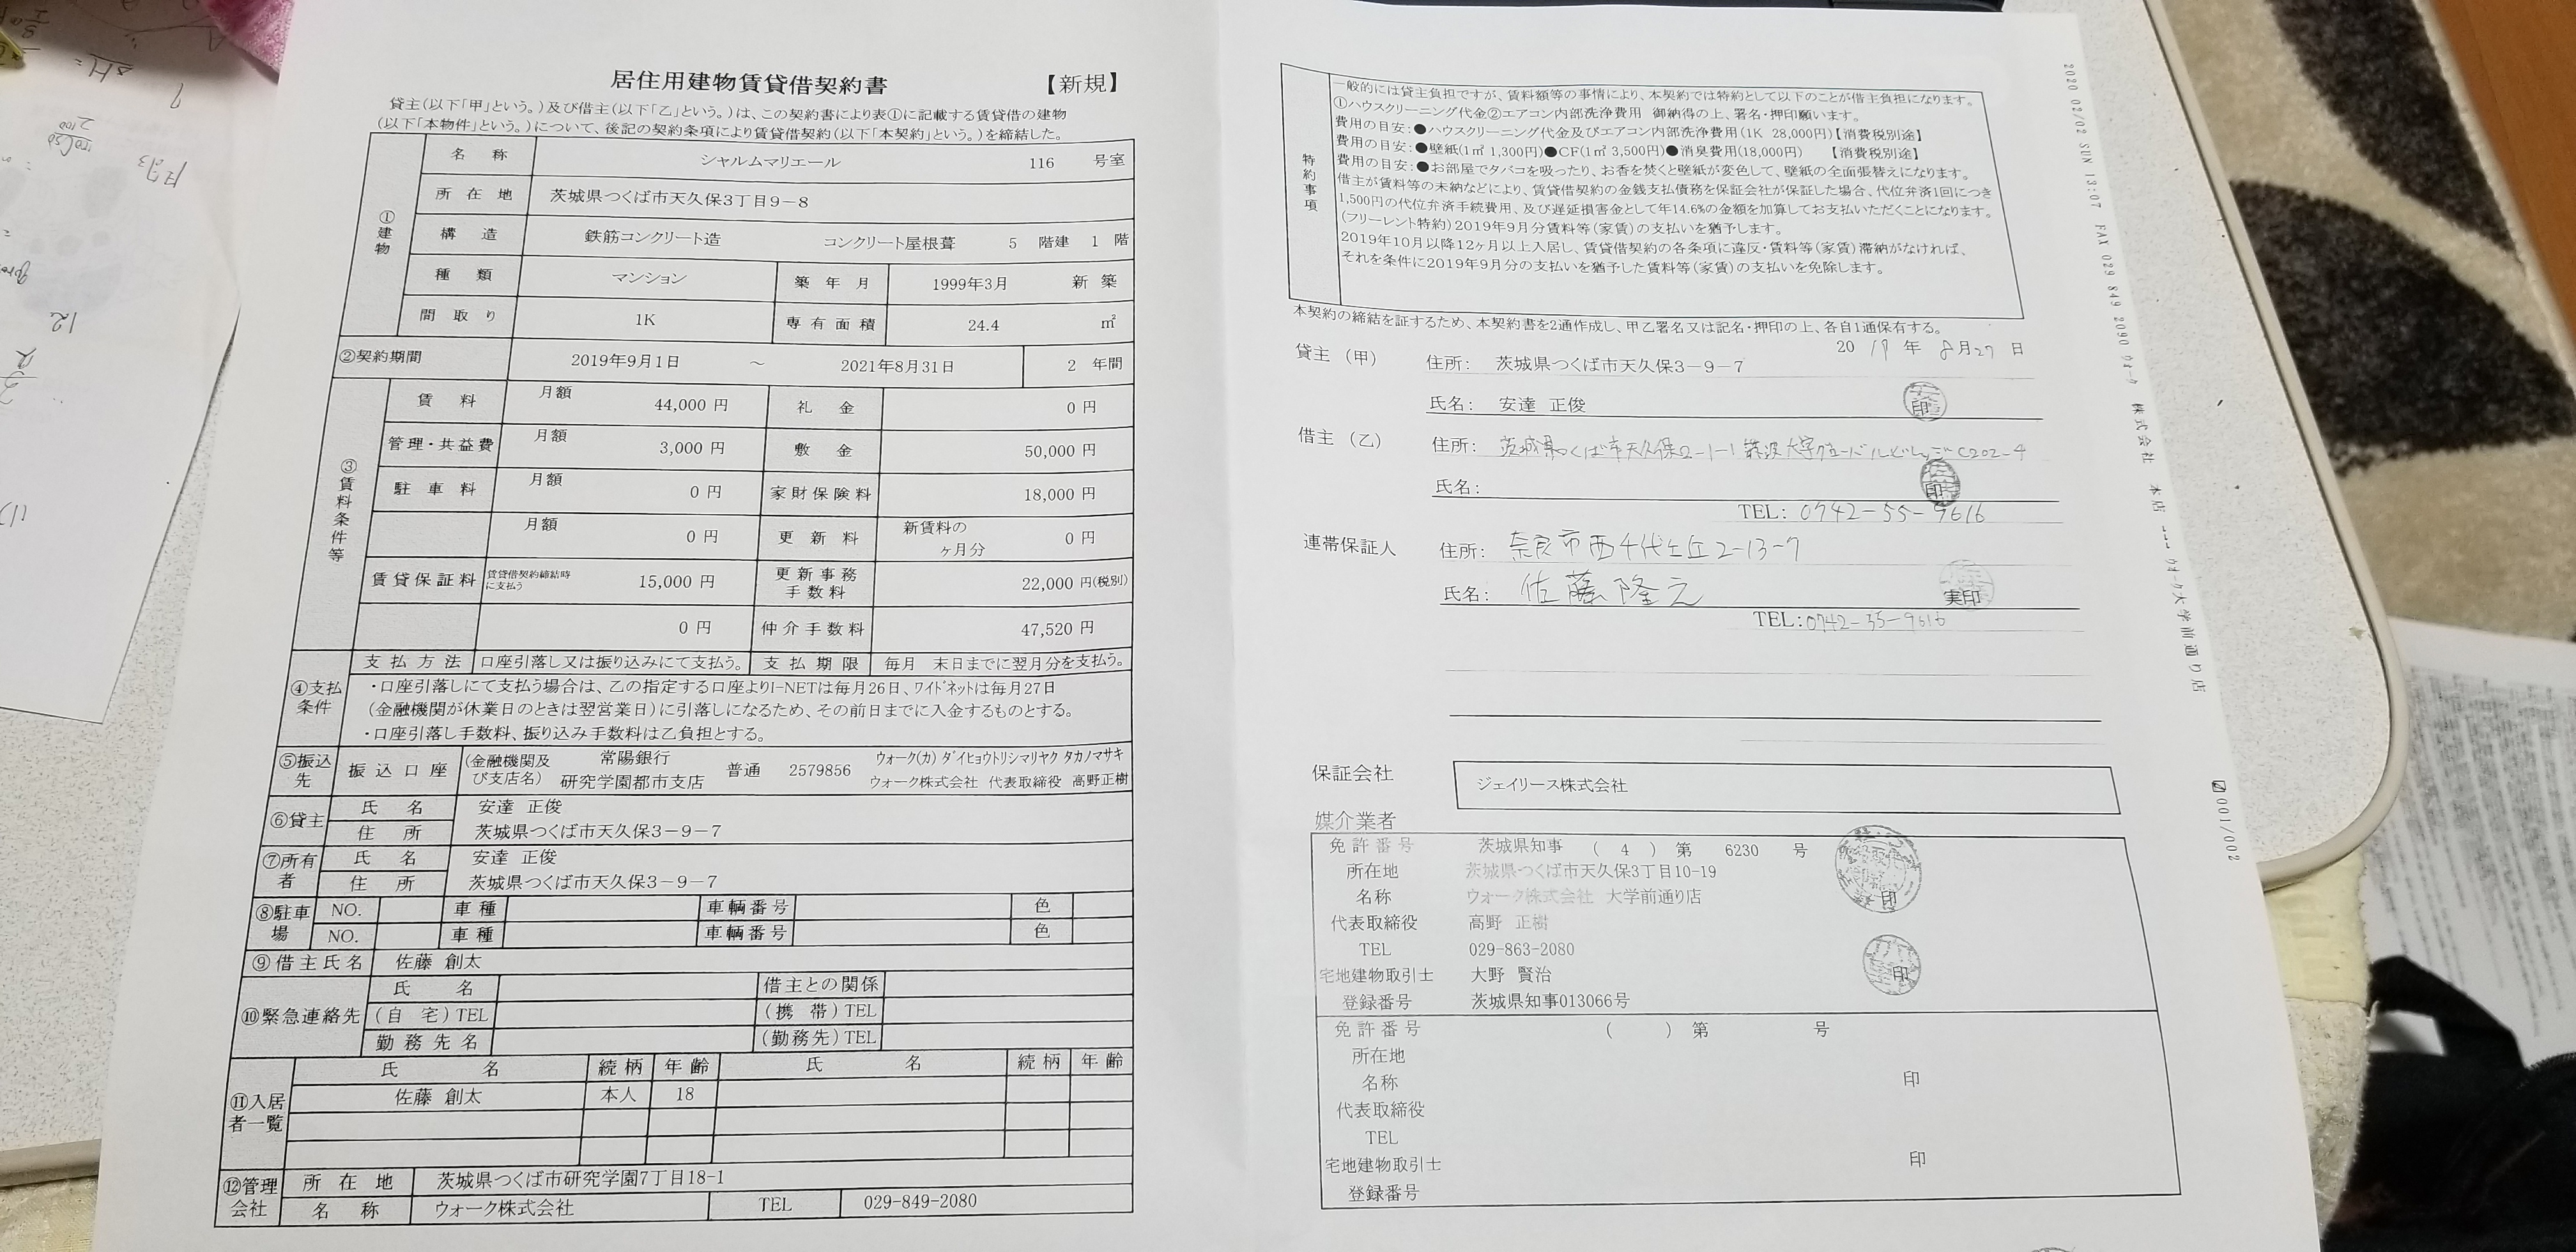 居住用建物賃貸借契約書
【新規】
貸主(以下「甲」という。)及び借主(以下「乙」という。)は、この契約書により表①に記載する賃貸借の建物
(以下「本物件」という。)について、後記の契約条項により賃貸借契約(以下「本契約」という。)を締結した。
①建物 名称 シャルムマリエール 116 号室
所在地 茨城県つくば市天久保3丁目9-8
構造 鉄筋コンクリート造 コンクリート屋根葺 5 階建 1 階
種類 マンション 築年月 1999年3月 新築
間取り 1K 専有面積 24.4 ㎡
②契約期間 2019年9月1日 ～ 2021年8月31日 2 年間
③賃料条件等 賃料 月額 44,000 円 礼金 0 円
管理・共益費 月額 3,000 円 敷金 50,000 円
駐車料 月額 0 円 家財保険料 18,000 円
月額 0 円 更新料 新賃料の ヶ月分 0 円
賃貸保証料 賃貸借契約締結時に支払う 15,000 円 更新事務手数料 22,000 円(税別)
0 円 仲介手数料 47,520 円
④支払条件 支払方法 口座引落し又は振り込みにて支払う。 支払期限 毎月 末日までに翌月分を支払う。
・口座引落しにて支払う場合は、乙の指定する口座よりI-NETは毎月26日、ワイドネットは毎月27日
(金融機関が休業日のときは翌営業日)に引落しになるため、その前日までに入金するものとする。
・口座引落し手数料、振り込み手数料は乙負担とする。
⑤振込先 振込口座 (金融機関及び支店名) 常陽銀行 研究学園都市支店 普通 2579856 ウォーク(カ) ダイヒョウトリシマリヤク タカノマサキ
ウォーク株式会社 代表取締役 高野正樹
⑥貸主 氏名 安達 正俊
住所 茨城県つくば市天久保3-9-7
⑦所有者 氏名 安達 正俊
住所 茨城県つくば市天久保3-9-7
⑧駐車場 NO. 車種 車輌番号 色
NO. 車種 車輌番号 色
⑨借主氏名 佐藤 創太
⑩緊急連絡先 氏名 借主との関係
(自宅)TEL (携帯)TEL
勤務先名 (勤務先)TEL
⑪入居者一覧 氏名 続柄 年齢 氏名 続柄 年齢
佐藤 創太 本人 18
⑫管理会社 所在地 茨城県つくば市研究学園7丁目18-1
名称 ウォーク株式会社 TEL 029-849-2080
特約事項
一般的には貸主負担ですが、賃料額等の事情により、本契約では特約として以下のことが借主負担になります。
①ハウスクリーニング代金②エアコン内部洗浄費用 御納得の上、署名・押印願います。
費用の目安:●ハウスクリーニング代金及びエアコン内部洗浄費用(1K 28,000円)【消費税別途】
費用の目安:●壁紙(1㎡ 1,300円)●CF(1㎡ 3,500円)●消臭費用(18,000円) 【消費税別途】
費用の目安:●お部屋でタバコを吸ったり、お香を焚くと壁紙が変色して、壁紙の全面張替えになります。
借主が賃料等の未納などにより、賃貸借契約の金銭支払債務を保証会社が保証した場合、代位弁済1回につき
1,500円の代位弁済手続費用、及び遅延損害金として年14.6%の金額を加算してお支払いただくことになります。
(フリーレント特約)2019年9月分賃料等(家賃)の支払いを猶予します。
2019年10月以降12ヶ月以上入居し、賃貸借契約の各条項に違反・賃料等(家賃)滞納がなければ、
それを条件に2019年9月分の支払いを猶予した賃料等(家賃)の支払いを免除します。
本契約の締結を証するため、本契約書を2通作成し、甲乙署名又は記名・押印の上、各自1通保有する。
2019年 8月27日
貸主(甲) 住所: 茨城県つくば市天久保3-9-7
氏名: 安達 正俊 印
借主(乙) 住所: 茨城県つくば市天久保2-1-1 筑波大学
氏名: TEL: 0742-55-9616 印
連帯保証人 住所: 奈良市西千代ヶ丘2-13-7
氏名: 佐藤隆之 TEL:0742-55-9616 実印
保証会社 ジェイリース株式会社
媒介業者
免許番号 茨城県知事 ( 4 ) 第 6230 号
所在地 茨城県つくば市天久保3丁目10-19
名称 ウォーク株式会社 大学前通り店
代表取締役 高野 正樹 印
TEL 029-863-2080
宅地建物取引士 大野 賢治 印
登録番号 茨城県知事013066号
免許番号 ( ) 第 号
所在地
名称
代表取締役 印
TEL
宅地建物取引士 印
登録番号
2020 02/02 SUN 13:07 FAX 029 849 2090 ウォーク 株式会社 本店 ーーー ウォーク大学前通り店
001/002